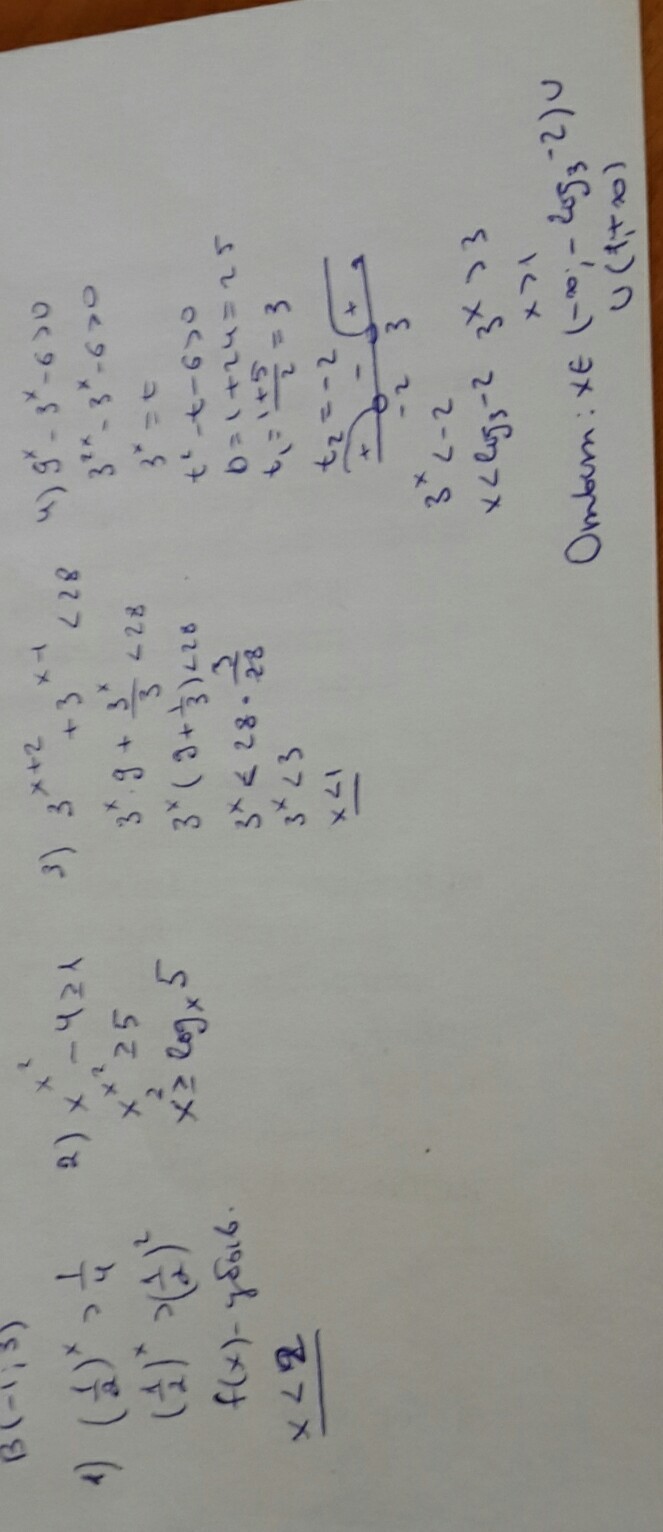 B(-1; 3)
1) (1/2)^x > 1/4
(1/2)^x > (1/2)^2
f(x) - убыв.
x < 2
2) x^x^2 - 4 ≥ 1
x^x^2 ≥ 5
x^2 ≥ log_x 5
3) 3^x+2 + 3^x-1 < 28
3^x · 9 + 3^x/3 < 28
3^x (9 + 1/3) < 28
3^x < 28 · 3/28
3^x < 3
x < 1
4) 9^x - 3^x - 6 > 0
3^2x - 3^x - 6 > 0
3^x = t
t^2 - t - 6 > 0
D = 1 + 24 = 25
t_1 = 1+5/2 = 3
t_2 = -2
+ - +
-2 3
3^x < -2 3^x > 3
x < log_3 -2 x > 1
Ответ: x ∈ (-∞; - log_3 -2) ∪
∪ (1; +∞)